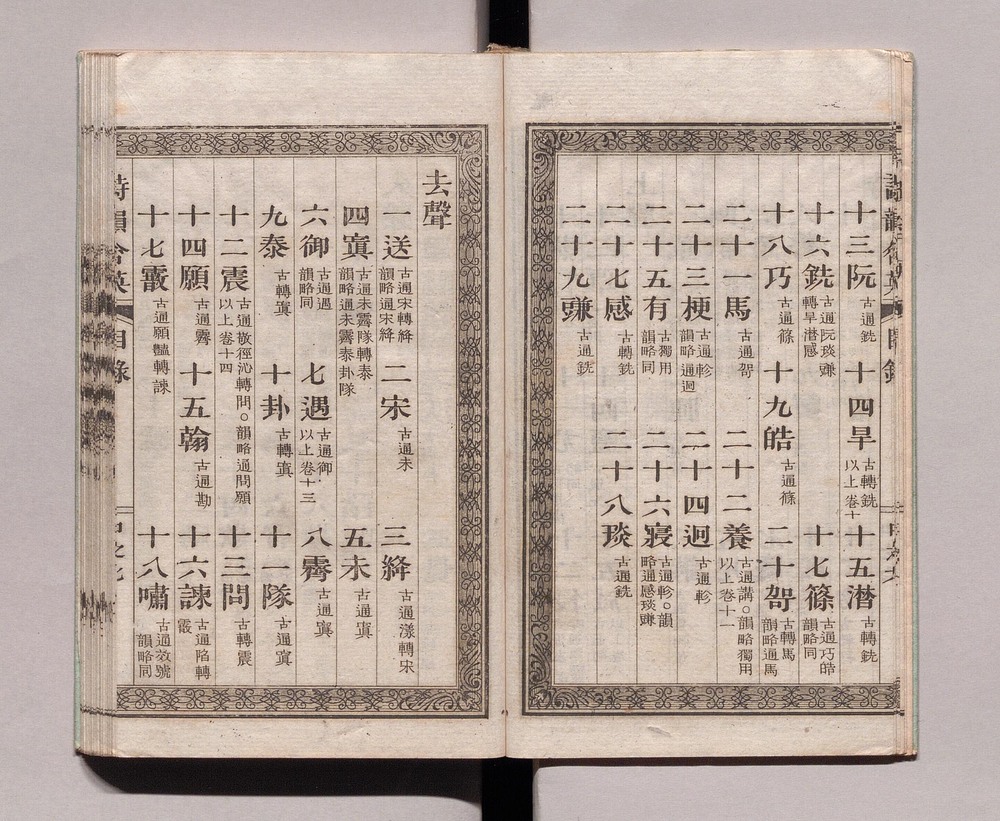 十三阮 古通銑 十四旱 古轉銑以上卷十 十五潸 古轉銑
十六銑 古通阮琰豏轉旱潸感 十七篠 古通巧皓韻略同
十八巧 古通篠 十九皓 古通篠 二十哿 古轉馬韻略通馬
二十一馬 古通哿 二十二養 古通講○韻略獨用以上卷十一
二十三梗 古通軫韻略通迥 二十四迥 古通軫
二十五有 古獨用韻略同 二十六寢 古通軫○韻略通感琰豏
二十七感 古轉銑 二十八琰 古通銑
二十九豏 古通銑
去聲
一送 古通宋轉絳韻略通宋絳 二宋 古通未 三絳 古通漾轉宋
四寘 古通未霽隊轉泰韻略通未霽泰卦隊 五未 古通寘
六御 古通遇韻略同 七遇 古通御以上卷十三 八霽 古通寘
九泰 古轉寘 十卦 古轉寘 十一隊 古通寘
十二震 古通敬徑沁轉問○韻略通問願以上卷十四 十三問 古轉震
十四願 古通霽 十五翰 古通勘 十六諫 古通陷轉霰
十七霰 古通願豔轉諫 十八嘯 古通效號韻略同
詩韻含英 目錄